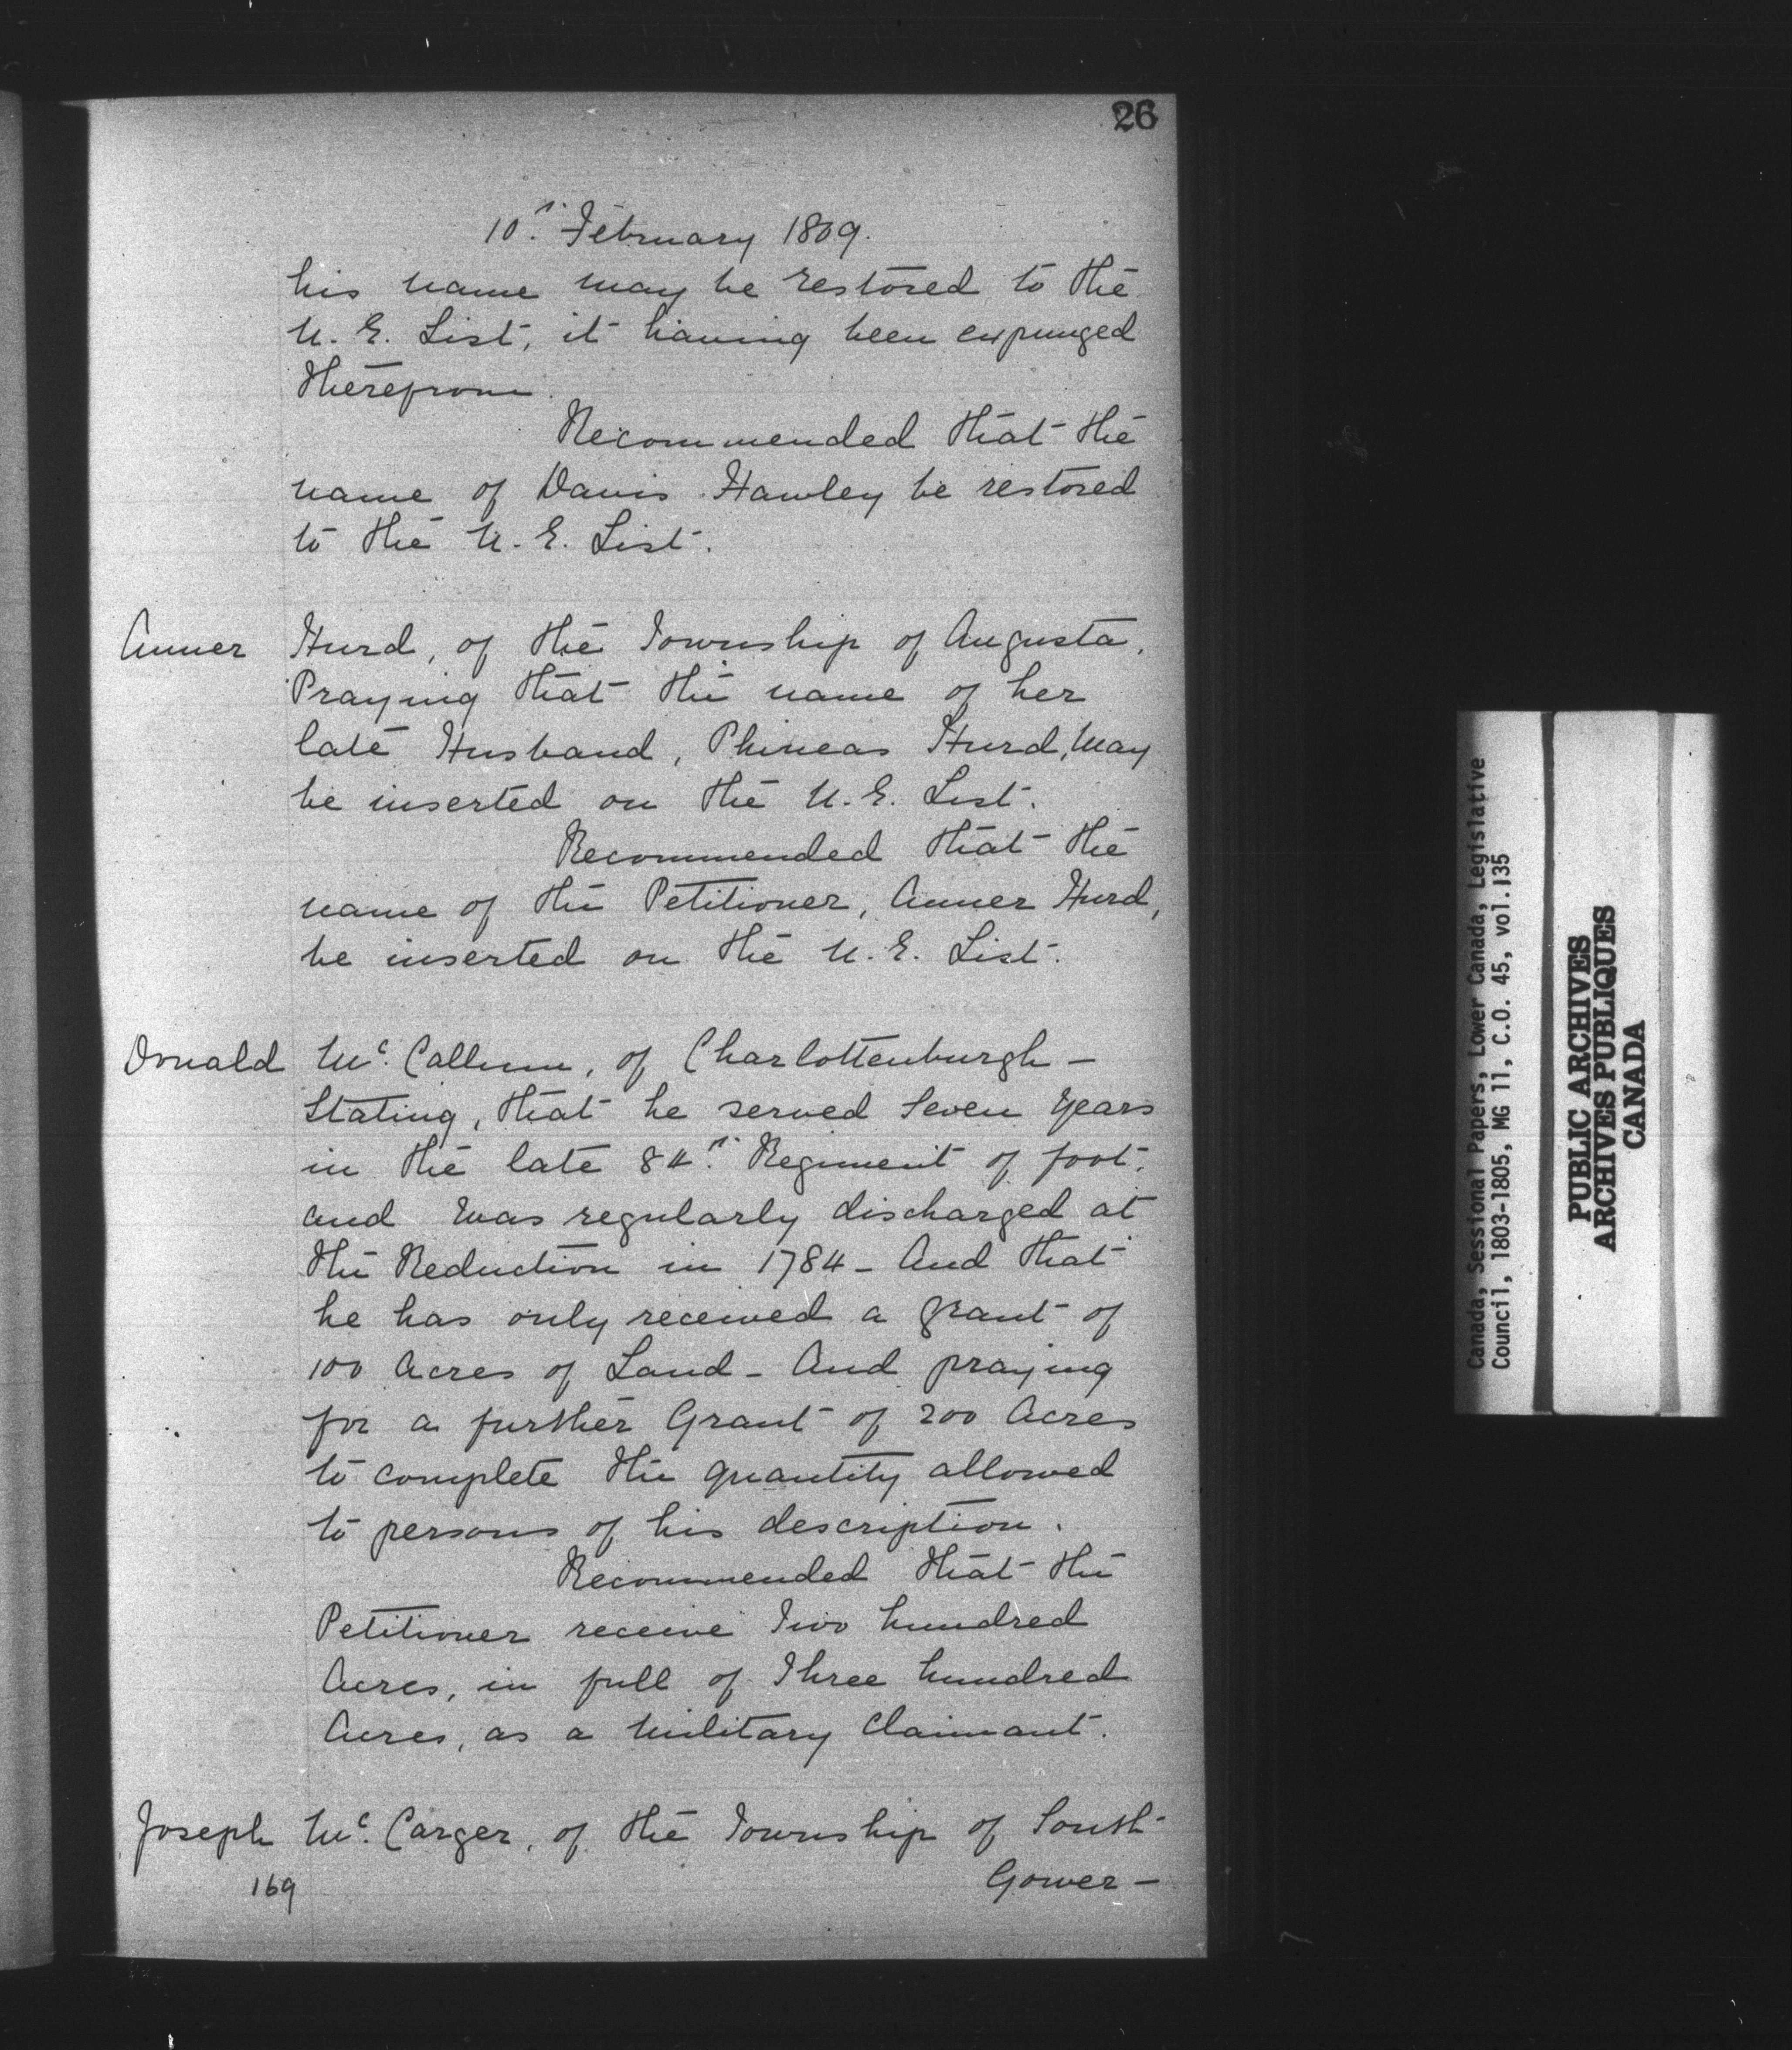 26
10th February 1809.
his name may be restored to the
U. E. List, it having been expunged
therefrom.
Recommended that the
name of Davis Hawley be restored
to the U. E. List.
Anner Hurd, of the Township of Augusta,
Praying that the name of her
late Husband, Phineas Hurd, may
be inserted on the U. E. List.
Recommended that the
name of the Petitioner, Anner Hurd,
be inserted on the U. E. List.
Donald Mc. Callum, of Charlottenburgh –
Stating, that he served Seven Years
in the late 84th Regiment of foot,
and was regularly discharged at
the Reduction in 1784 – And that
he has only received a grant of
100 Acres of Land – And praying
for a further Grant of 200 Acres
to complete the quantity allowed
to persons of his description.
Recommended that the
Petitioner receive Two hundred
Acres, in full of Three hundred
Acres, as a Military Claimant.
Joseph Mc. Carger, of the Township of South
169 Gower –
Canada, Sessional Papers, Lower Canada, Legislative
Council, 1803-1805, MG 11, C.O. 45, vol.135
PUBLIC ARCHIVES
ARCHIVES PUBLIQUES
CANADA